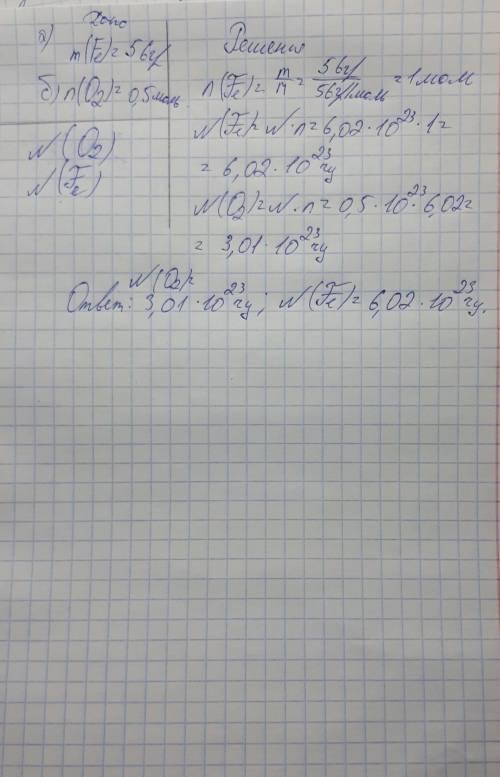 Дано
а) m(Fe)=56г
б) n(O₂)=0,5моль
N(O₂)
N(Fe)
Решение
n(Fe)=m/M=56г/56г/моль=1мол
N(Fe)=N·n=6,02·10²³·1=
=6,02·10²³
N(O₂)=N·n=0,5·10²³·6,02=
=3,01·10²³
N(O₂)=
Ответ: 3,01·10²³; N(Fe)=6,02·10²³